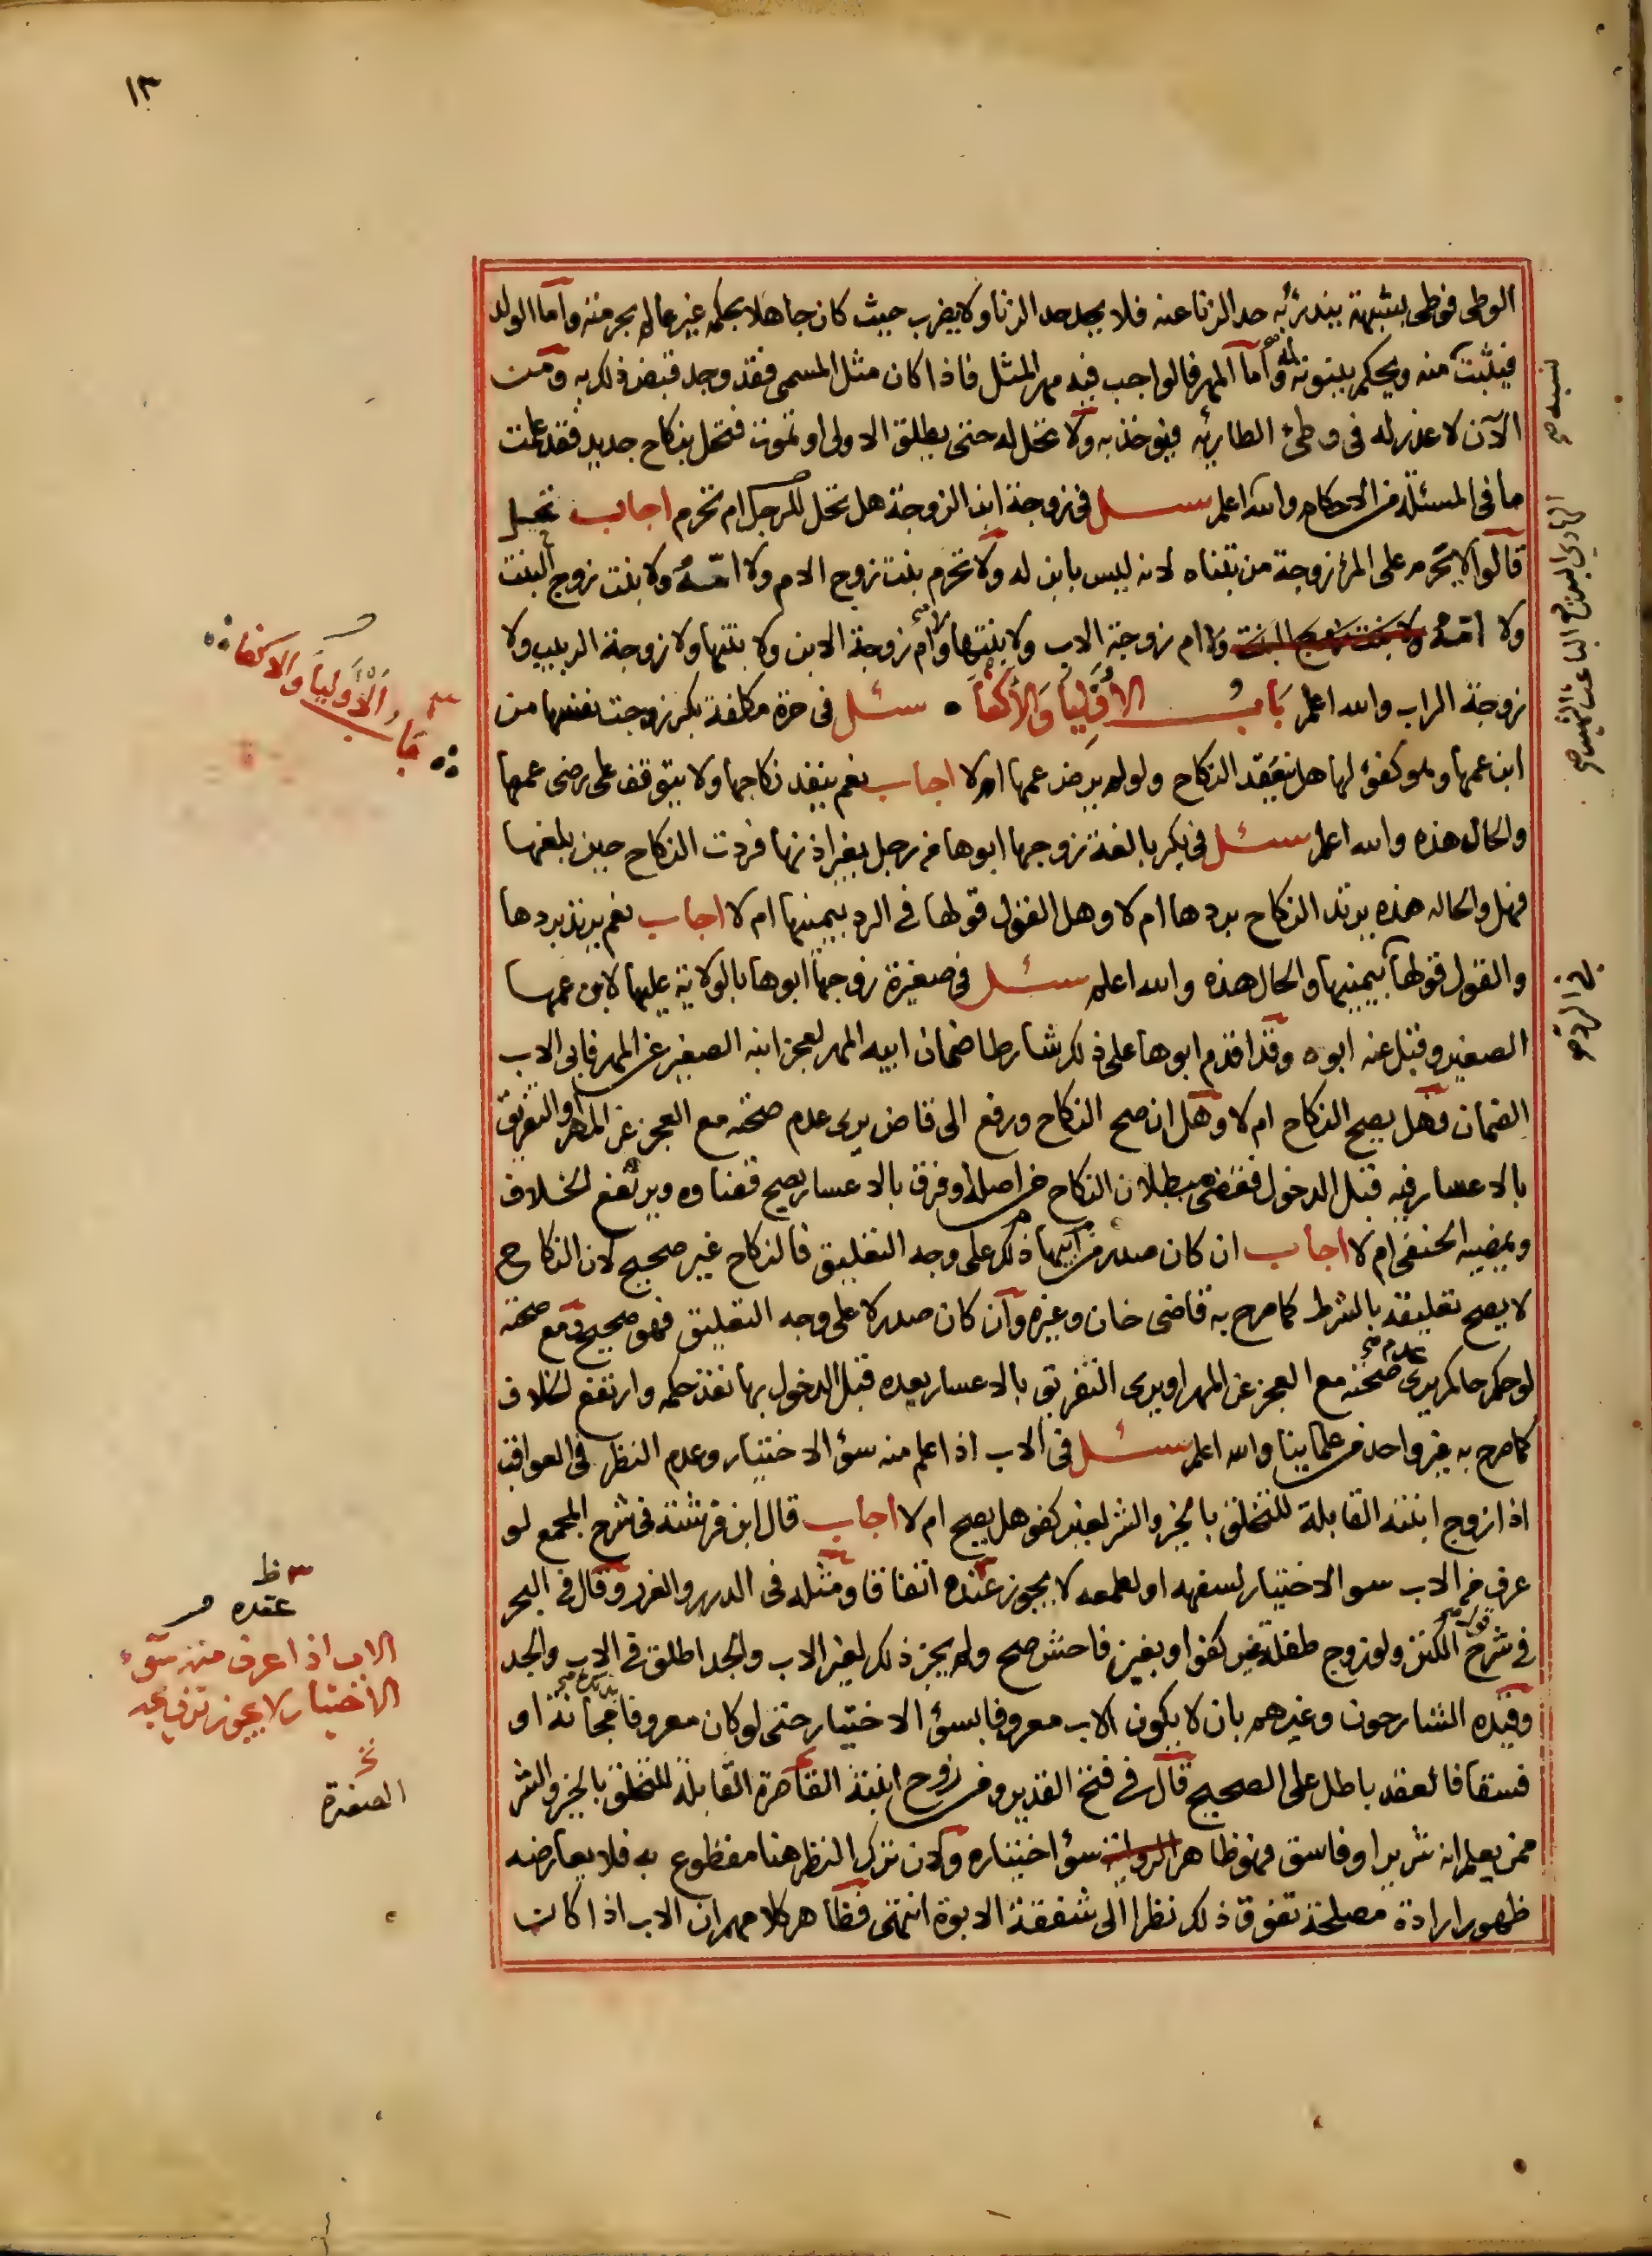 ١٣
الوطى فوطى بشبهة يندرئ به حد الزنا عنه فلا يحد حد الزنا ولا يضرب حيث كان جاهلا بحكمه غير عالم بحرمته واما الولد
فيثبت منه ويحكم ببنوته له واما المهر فالواجب فيه مهر المثل فاذا كان مثل المسمى فقد وجد قبض ذلك به ومن
الآن لا عذر له فى وطئ الطارئه فيوخذ به ولا تحل له حتى يطلق الاولى او تموت فتحل بنكاح جديد فقد علمت
ما فى المسئلة من الاحكام والله اعلم سئل فى زوجة ابن الزوجة هل تحل للرجل ام تحرم اجاب تحل
قالوا لا يحرم على المرء زوجة من تبناه لانه ليس بابن له ولا تحرم بنت زوج الام ولا امه ولا بنت زوج البنت
ولا امه ولا بنت زوج البنت ولا ام زوجة الاب ولا بنتها ولا ام زوجة الابن ولا بنتها ولا زوجة الربيب ولا
زوجة الراب والله اعلم باب الأوليا والأكفا سئل فى حرة مكلفة بكر زوجت نفسها من
ابن عمها وهو كفؤ لها هل ينعقد النكاح ولو لم يرض عمها ام لا اجاب نعم ينفذ نكاحها ولا يتوقف على رضى عمها
والحال هذه والله اعلم سئل فى بكر بالغة زوجها ابوها من رجل بغير اذنها فردت النكاح حين بلغها
فهل والحاله هذه يرتد النكاح بردها ام لا وهل القول قولها فى الرد بيمينها ام لا اجاب نعم يرتد بردها
والقول قولها بيمينها والحال هذه والله اعلم سئل فى صغيرة زوجها ابوها بالولاية عليها لابن عمها
الصغير وقبل عنه ابوه وقد اقدم ابوها على ذلك شارطا ضمان ابيه المهر لعجز ابنه الصغير عن المهر فابى الاب
الضمان وهل يصح النكاح ام لا وهل ان صح النكاح ورفع الى قاض يرى عدم صحته مع العجز عن المهر او التفريق
بالاعسار فيه قبل الدخول فقضى ببطلان النكاح من اصله او فرق بالاعسار يصح قضاوه ويرتفع الخلاف
ويمضيه الحنفى ام لا اجاب ان كان صدر من ابيها ذلك على وجه التعليق فالنكاح غير صحيح لان النكاح
لا يصح تعليقه بالشرط كما صرح به قاضى خان وغيره وان كان صدر لا على وجه التعليق فهو صحيح ومع صحته
لو حكم حاكم يرى عدم صحته مع العجز عن المهر او يرى التفريق بالاعسار بعده قبل الدخول بها نفذ حكمه وارتفع الخلاف
كما صرح به غير واحد من علماينا والله اعلم سئل فى الاب اذا علم منه سؤ الاختيار وعدم النظر فى العواقب
اذا زوج ابنته القابلة للتخلق بالخير والشر لغير كفو هل يصح ام لا اجاب قال ابن فرشته فى شرح المجمع لو
عرف من الاب سوء الاختيار لسفهه او لطمعه لا يجوز عنده اتفاقا ومثله فى الدرر والغرر وقال فى البحر
فى شرح قول الكنز ولو زوج طفله غير كفو او بغبن فاحش صح ولم يجز ذلك لغير الاب والجد اطلق فى الاب والجد
وقيده الشارحون وغيرهم بان لا يكون الاب معروفا بسؤ الاختيار حتى لو كان معروفا بذلك مجانة او
فسقا فالعقد باطل على الصحيح قال فى فتح القدير ومن زوج ابنته القاصرة القابلة للتخلق بالخير والشر
ممن يعلم انه شرير او فاسق فهو ظاهر الرواية سؤ اختياره ولان ترك النظر هنا مقطوع به فلا يعارضه
ظهور ارادة مصلحة تفوق ذلك نظرا الى شفقة الابوة انتهى فظاهر كلامهم ان الاب اذا كانت
باب الأوليا والاكفاء
ظ
عقده
الاب اذا عرف منه سوء
الاختيار لا يجوز تزويجه
الصغيرة